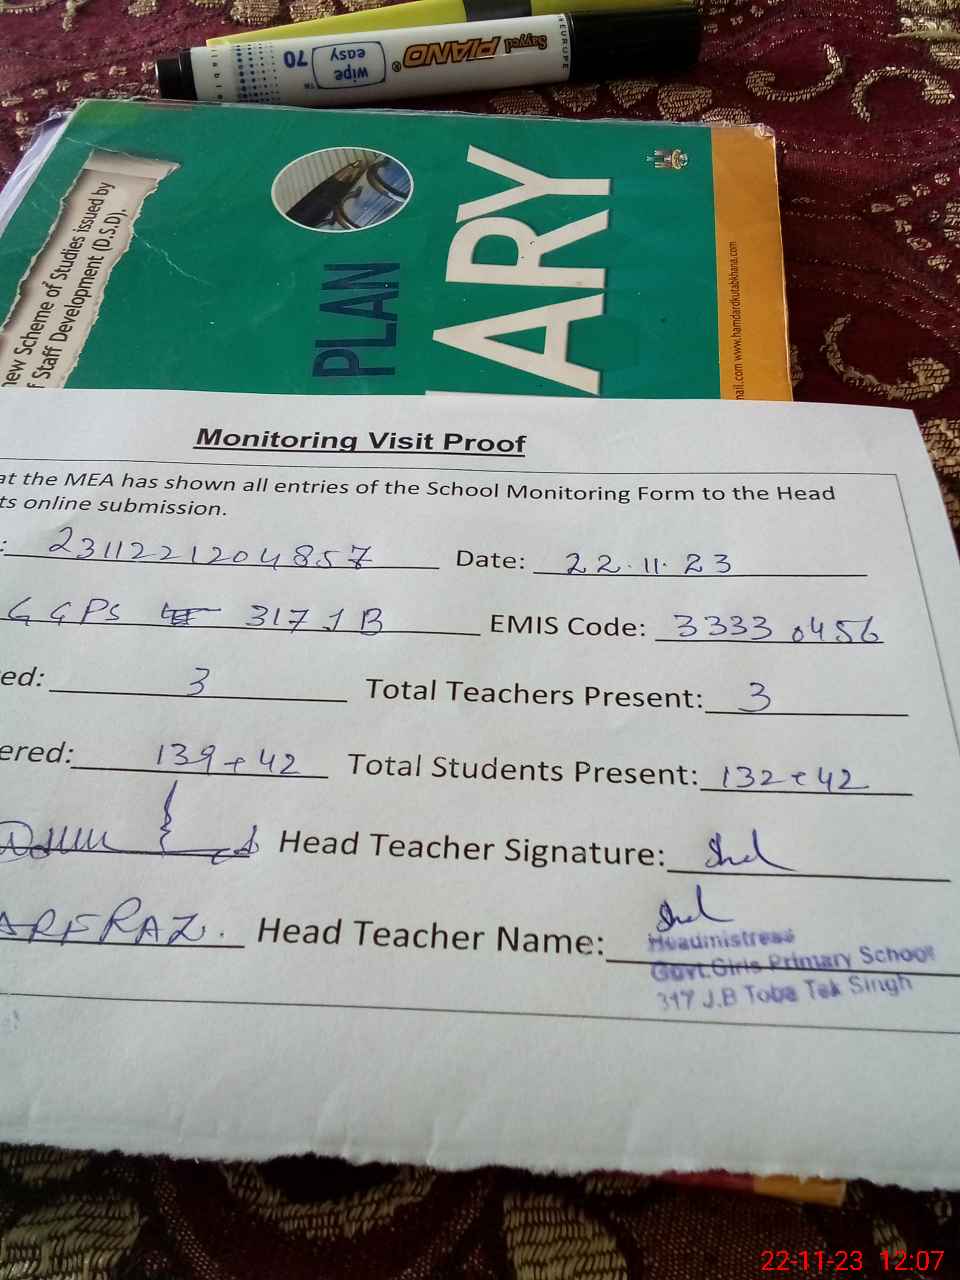 SURVURE
Sayyed PIANO®
wipe easy™
70
new Scheme of Studies issued by
f Staff Development (D.S.D),
PLAN
ARY
mail.com www.hamdardkutabkhana.com
Monitoring Visit Proof
at the MEA has shown all entries of the School Monitoring Form to the Head
ts online submission.
: 2311221204857 Date: 22.11.23
GGPS 317 JB EMIS Code: 33330456
ed: 3 Total Teachers Present: 3
ered: 139+42 Total Students Present: 132+42
Head Teacher Signature:
ARFRAZ. Head Teacher Name:
Headmistress
Govt.Girls Primary School
317 J.B Toba Tek Singh
22-11-23 12:07